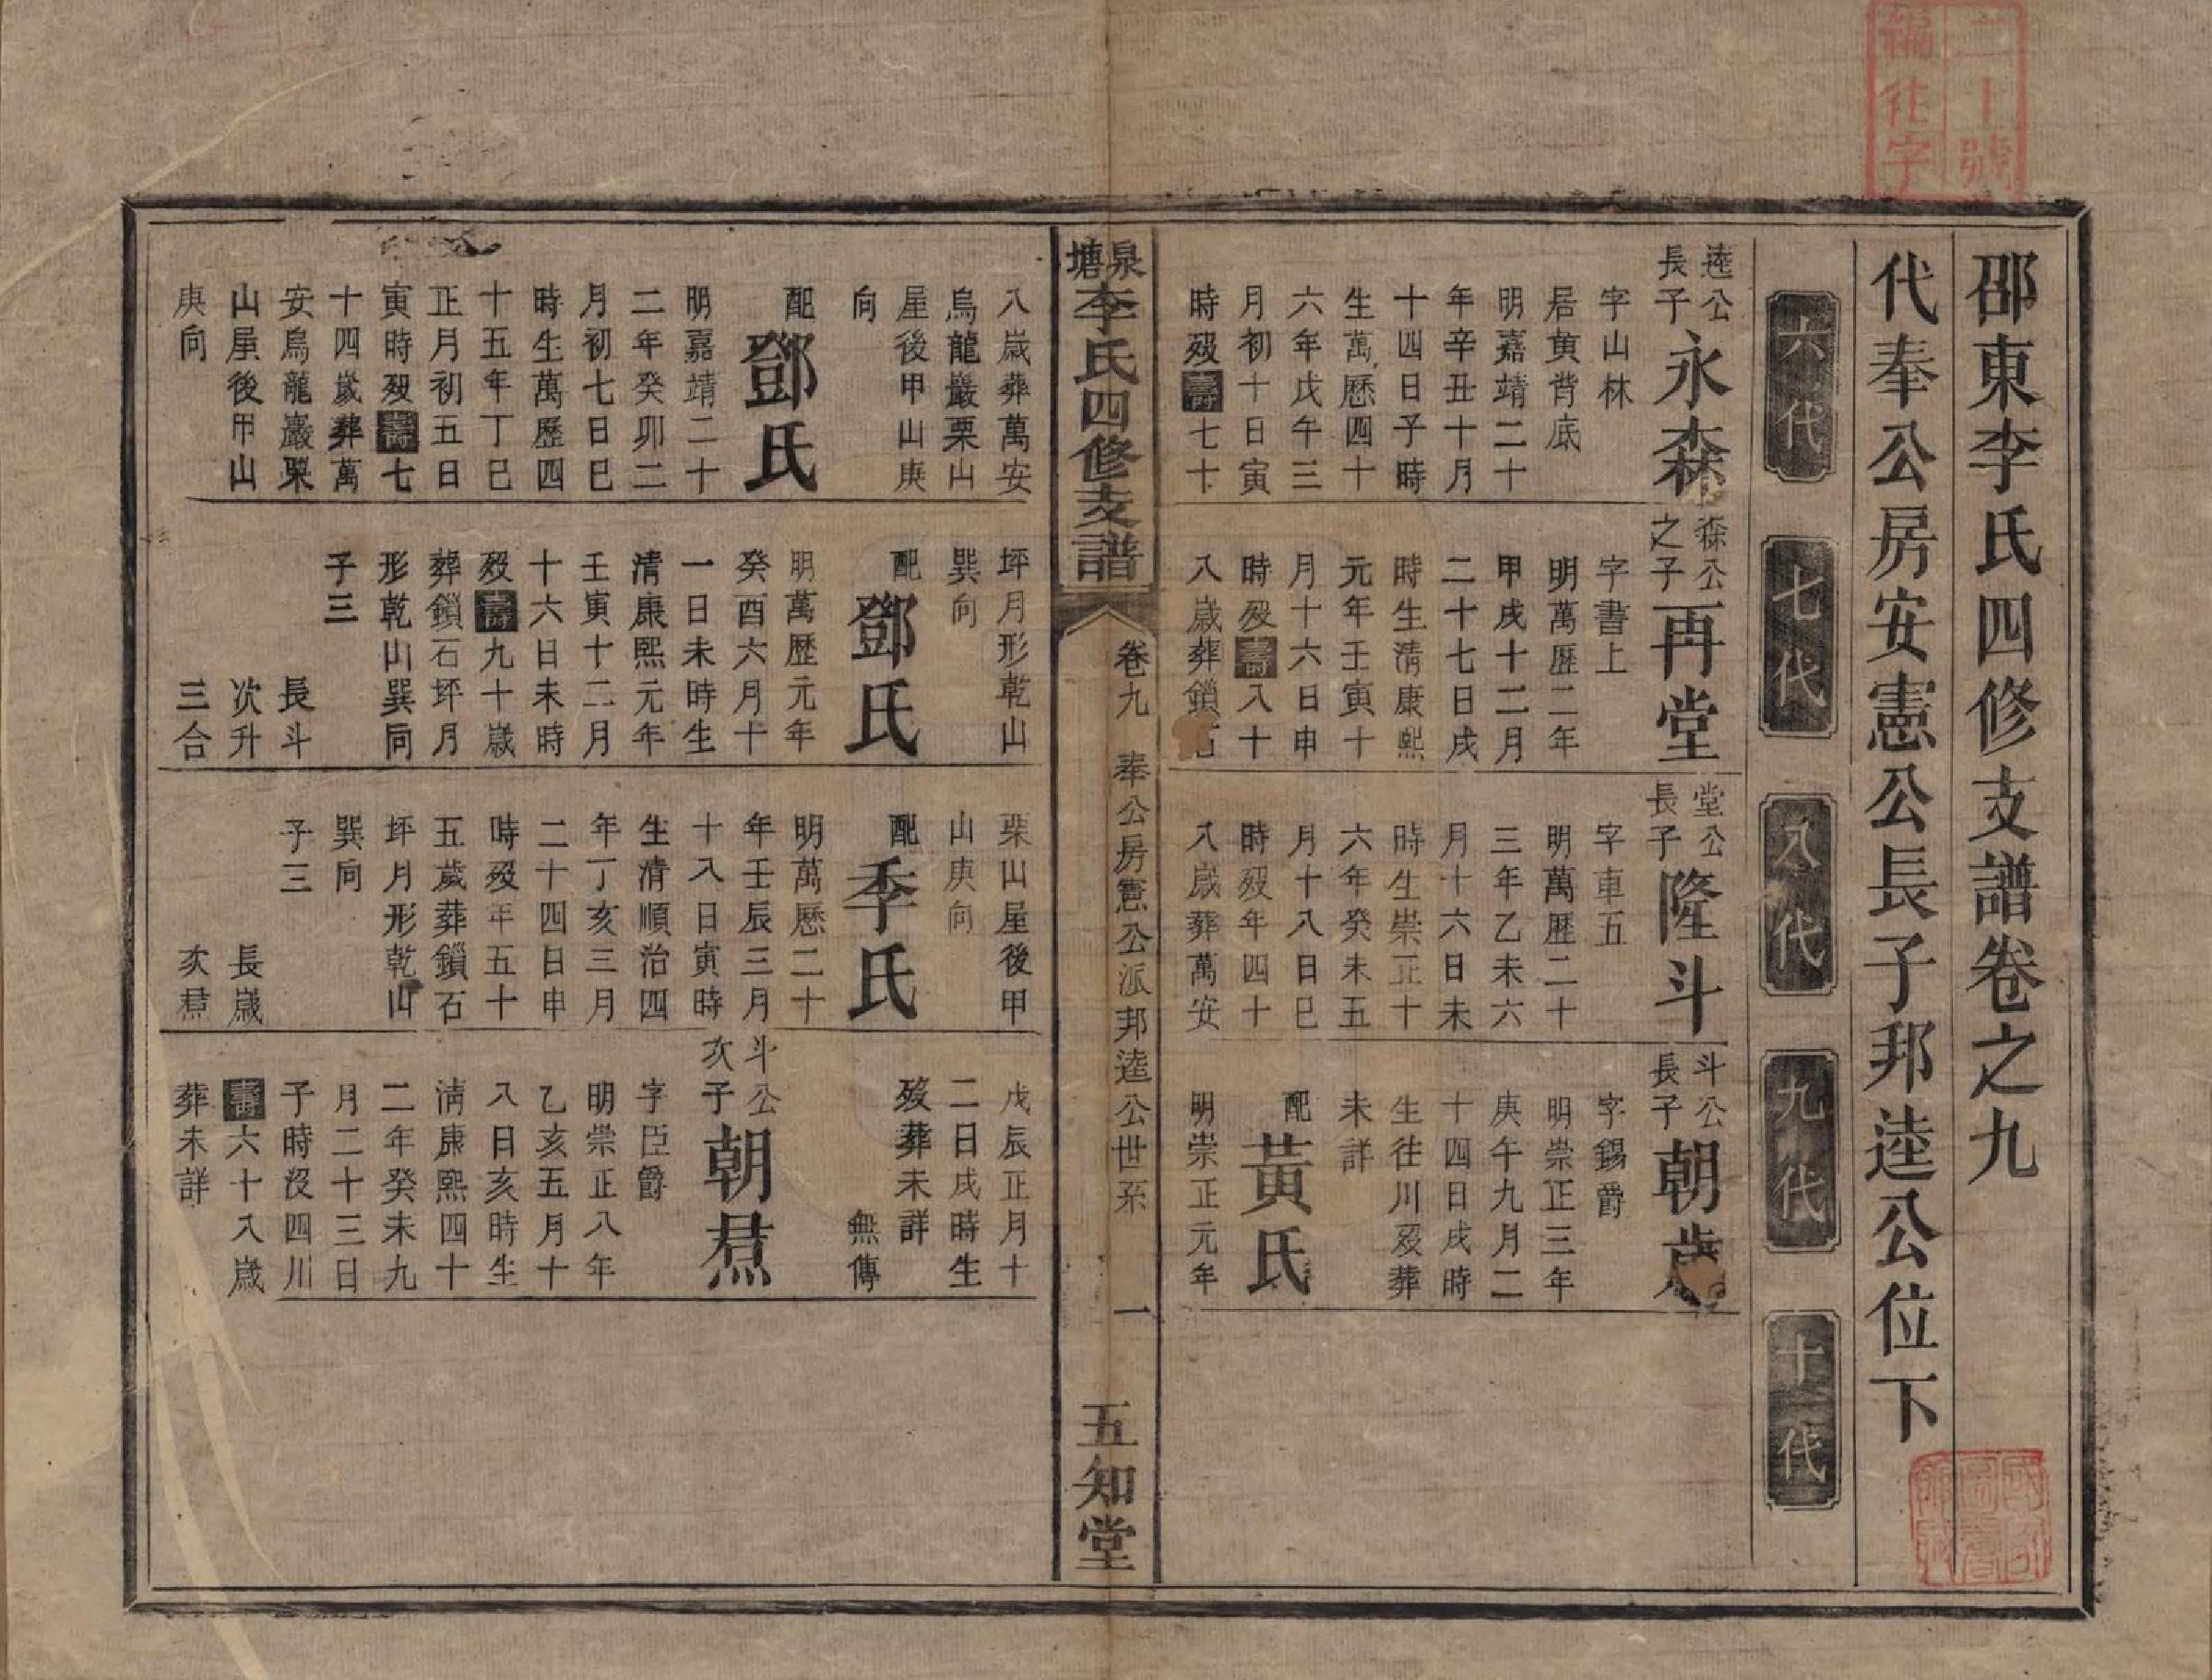 二十號
編作字
邵東李氏四修支譜卷之九
代奉公房安憲公長子邦逵公位下
六代
七代
八代
九代
十代
逵公長子
永森
字山林
居黄背底
明嘉靖二十
年辛丑十月
十四日子時
生萬歷四十
六年戊午三
月初十日寅
時歿壽七十
八歲葬萬安
烏龍巖栗山
屋後甲山庚
向
配
鄧氏
明嘉靖二十
二年癸卯二
月初七日巳
時生萬歷四
十五年丁巳
正月初五日
寅時歿壽七
十四歲葬萬
安烏龍巖栗
山屋後甲山
庚向
森公之子
再堂
字書上
明萬歷二年
甲戌十二月
二十七日戌
時生清康熙
元年壬寅十
月十六日申
時歿壽八十
八歲葬鎖石
坪月形乾山
巽向
配
鄧氏
明萬歷元年
癸酉六月十
一日未時生
清康熙元年
壬寅十二月
十六日未時
歿壽九十歲
葬鎖石坪月
形乾山巽向
子三
長斗
次升
三合
堂公長子
隆斗
字車五
明萬歷二十
三年乙未六
月十六日未
時生崇正十
六年癸未五
月十八日巳
時歿年四十
八歲葬萬安
栗山屋後甲
山庚向
配
季氏
明萬歷二十
年壬辰三月
十八日寅時
生清順治四
年丁亥三月
二十四日申
時歿年五十
五歲葬鎖石
坪月形乾山
巽向
子三
長歲
次焄
斗公長子
朝歲
字錫爵
明崇正三年
庚午九月二
十四日戌時
生往川歿葬
未詳
配
黃氏
明崇正元年
戊辰正月十
二日戌時生
歿葬未詳
無傳
斗公次子
朝焄
字臣爵
明崇正八年
乙亥五月十
八日亥時生
清康熙四十
二年癸未九
月二十三日
子時沒四川
壽六十八歲
葬未詳
泉塘李氏四修支譜
卷九
奉公房憲公派邦逵公世系
一
五知堂